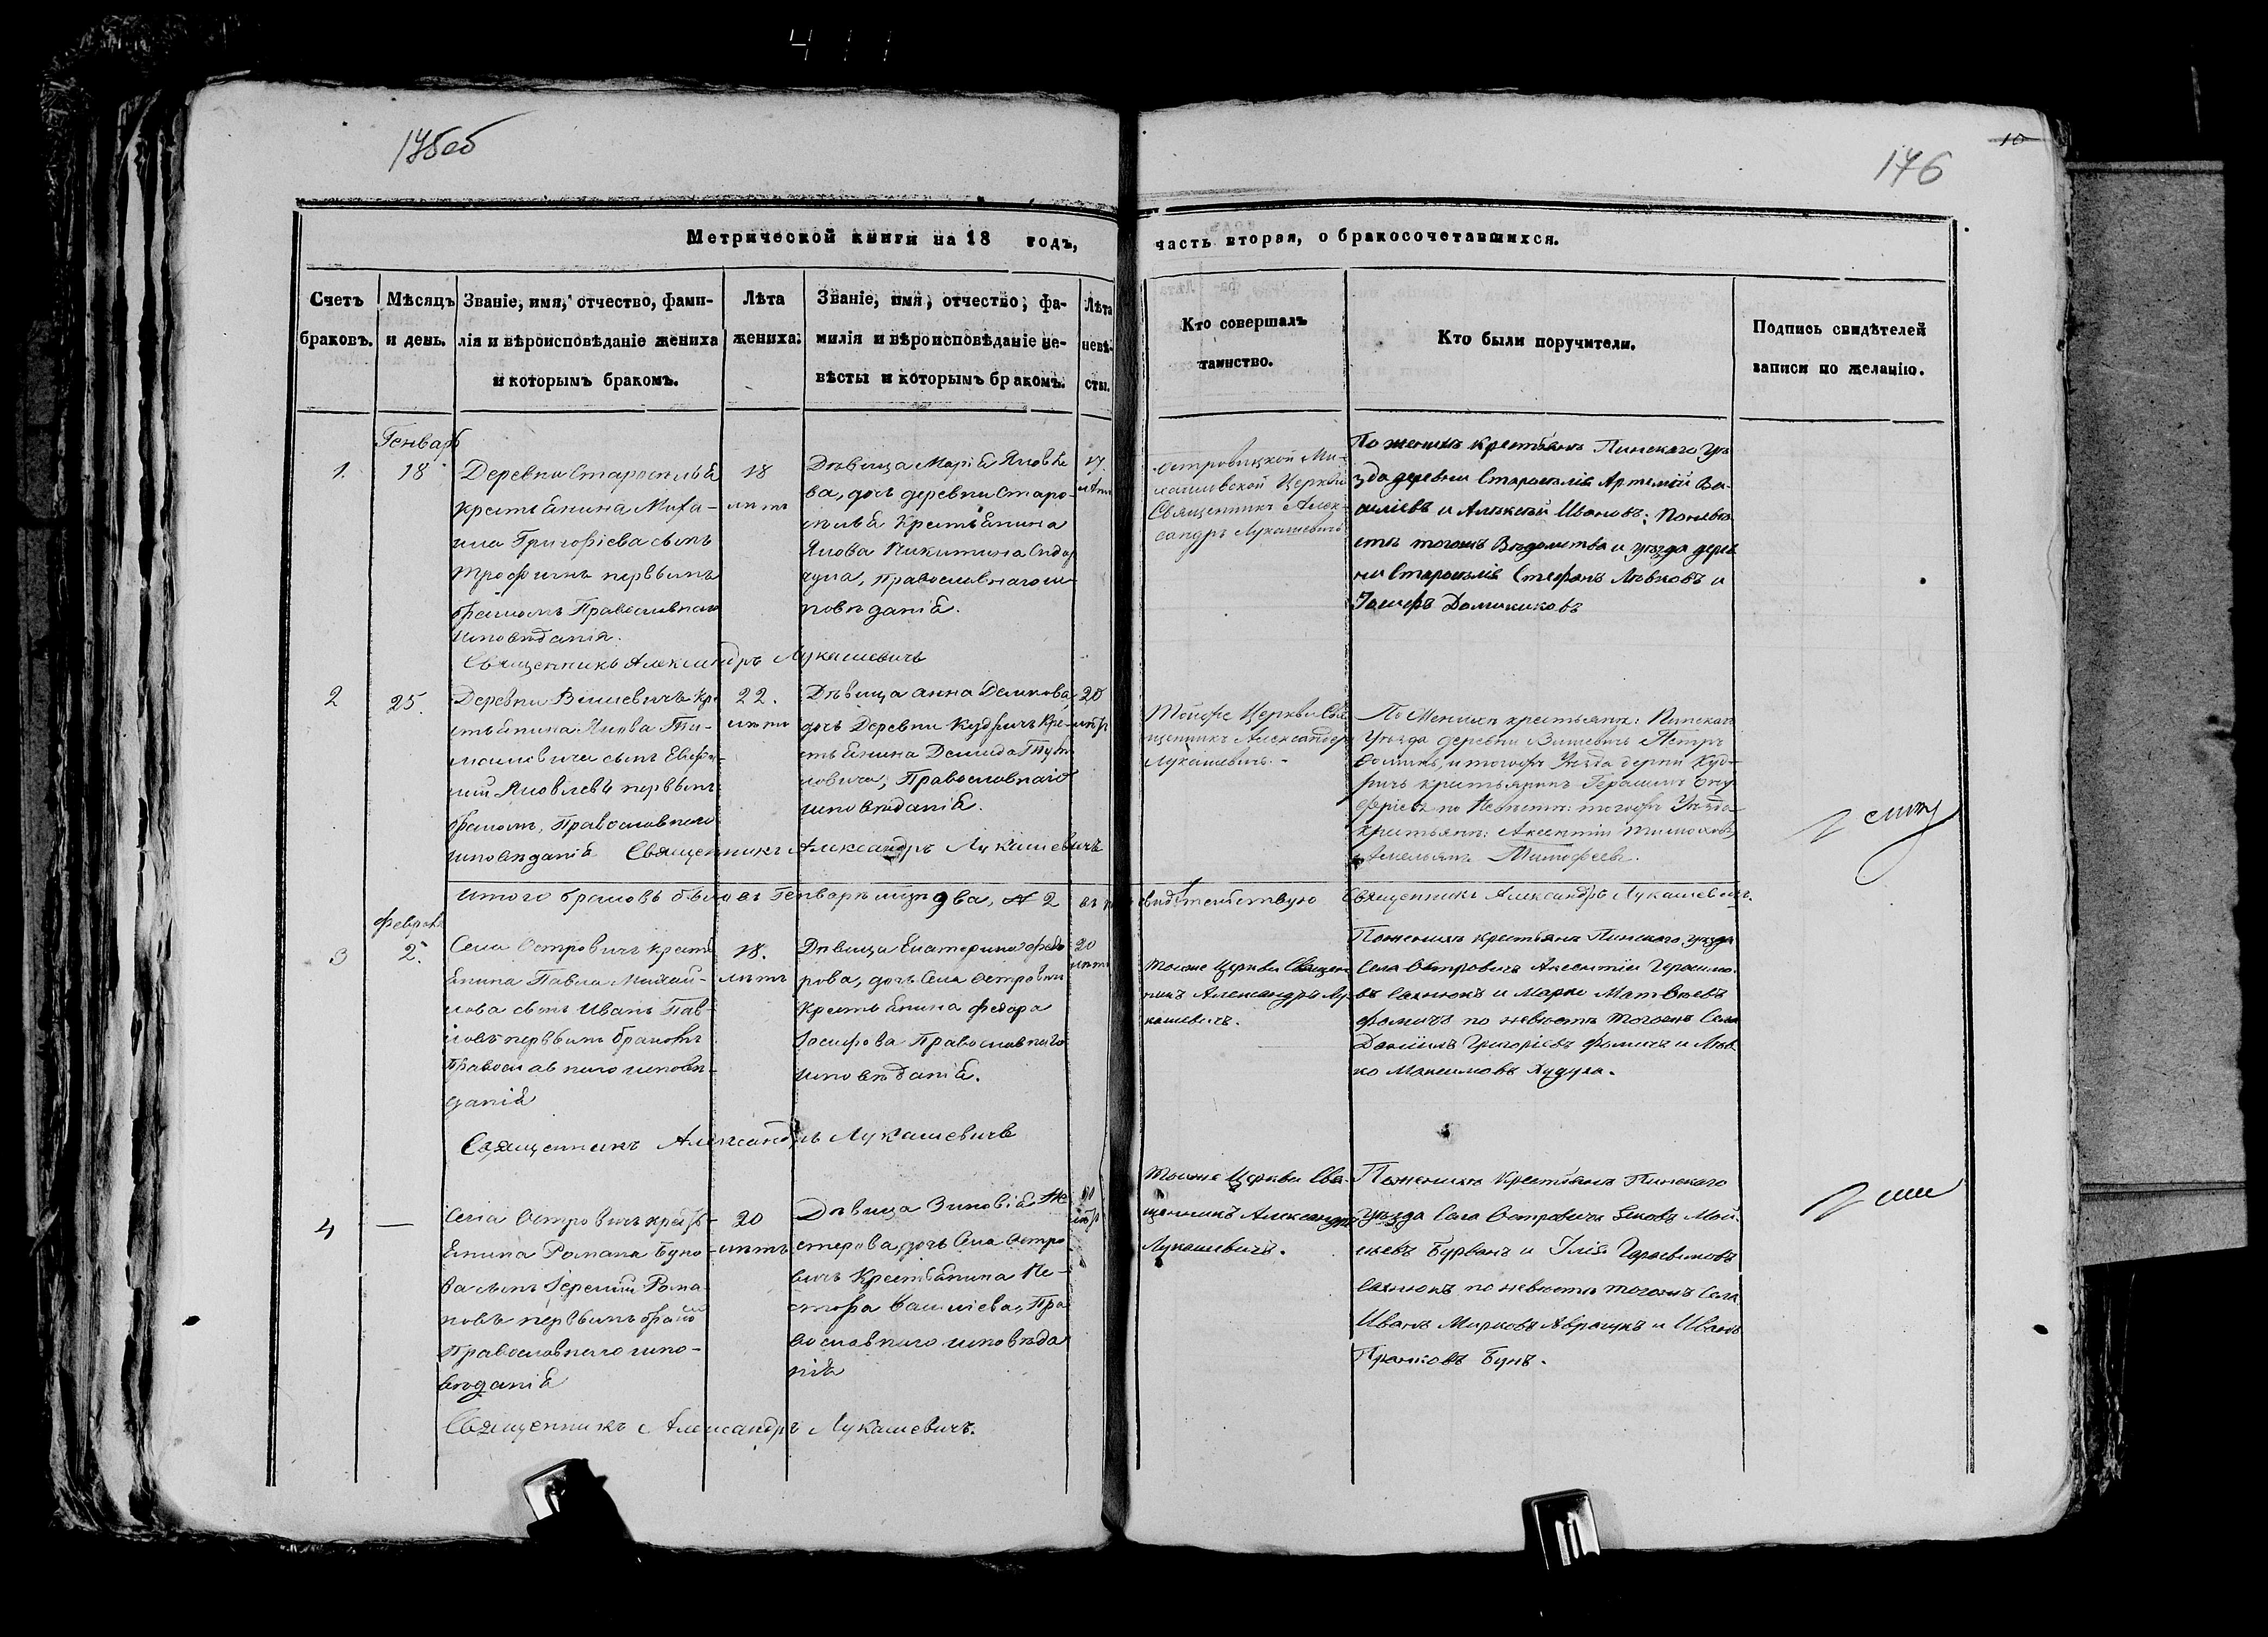 411
175об
176
10
Метрической книги на 18 годъ, часть вторая, о бракосочетавшихся.
Счетъ браковъ.
Мѣсяцъ и день.
Званіе, имя, отчество, фами-
лія и вѣроисповѣданіе жениха
и которымъ бракомъ.
Лѣта
жениха.
Званіе, имя, отчество, фа-
милія и вѣроисповѣданіе не-
вѣсты и которымъ бракомъ.
Лѣта
невѣ-
сты.
Кто совершалъ
таинство.
Кто были поручители.
Подпись свидѣтелей
записи по желанію.
Генварь
1.
18
Деревни Староселья
крестьянина Миха-
ила Григорієва сынъ
Трофимъ первымъ
бракомъ Православнаго
исповѣданія.
18
лѣтъ
Дѣвица Марія Яковле
ва, дочь деревни Старо-
селья Крестьянина
Якова Никитина
православнаго ис-
повѣданія.
17
лѣтъ
Островицкой Ми-
хайловской Церкви
Священникъ Алек-
сандръ Лукашевичъ
По женихѣ крестьянъ Пинскаго уѣ
зда деревни Староселія Артемій Ва-
силіевъ и Алексѣй Ивановъ; по невѣ
стѣ тогожъ Вѣдомства и уѣзда дерев
ни Староселія Стефанъ Левковъ и
Іосифъ Доминиковъ
Священникъ Александръ Лукашевичъ
2
25.
Деревни Вишевичъ кре
стьянина Якова
сынъ
Яковлевъ первымъ
бракомъ, Православнаго
исповѣданія
22.
лѣтъ
Дѣвица Анна Демидова,
дочь Деревни Кудричъ Кре-
стьянина Демида
Православнаго
исповѣданія.
20
лѣтъ
Тойже Церкви Свя
щенникъ Александръ
Лукашевичъ. -
По Женихѣ крестьяне: Пинскаго
Уѣзда деревни Вишевичъ Петръ
и тогожъ Уѣзда дерни Куд-
ричъ крестьянинъ Герасимъ Ону
фріевъ по Невѣстѣ: тогожъ Уѣзда
крестьяне: Аксентій
и Амельянъ Тимофеевъ.
Священникъ Александръ Лукашевичъ
Итого браковъ было въ Генварѣ мцѣ два, № 2 въ чемъ свидѣтельствую Священникъ Александръ Лукашевичъ.
Февраль
3
2.
Села Островичъ кресть
янина Павла Михай-
лова сынъ Иванъ Пав-
ловъ первымъ бракомъ
Православнаго исповѣ-
данія
18.
лѣтъ
Дѣвица Екатерина Федо
рова, дочь Села Островичъ
Крестьянина Федора
Іосифова Православнаго
исповѣданія.
20
лѣтъ
Тойже Церкви Священ
никъ Александръ Лу-
кашевичъ.
По женихѣ крестьянъ Пинскаго уѣзда
Села Островичъ Аксентій Герасимо-
въ Сахнюкъ и Марко Матвѣевъ
Фомичъ по невѣстѣ тогожъ Села
Даніилъ Григоріевъ Фомичъ и Лев
ко Максимовъ
Священникъ Александръ Лукашевичъ
4
—
Села Островичъ кресть-
янина Романа Буко
ва сынъ Іеремій Рома
новъ первымъ брако
Православнаго испо-
вѣданія
20
лѣтъ
Дѣвица Зиновія Не
стерова, дочь Села Остро
вичъ Крестьянина Не-
стора Василіева, Пра
вославнаго исповѣда
нія
лѣтъ
Тойже Церкви Свя-
щенникъ Александръ
Лукашевичъ.
По женихѣ Крестьянъ Пинскаго
уѣзда Села Островичъ Яковъ Мои-
сѣевъ Бурванъ и Ілія Герасимовъ
Сахнюкъ по невѣстѣ тогожъ Села
Иванъ Марковъ и Иванъ
Букъ.
Священникъ Александръ Лукашевичъ.